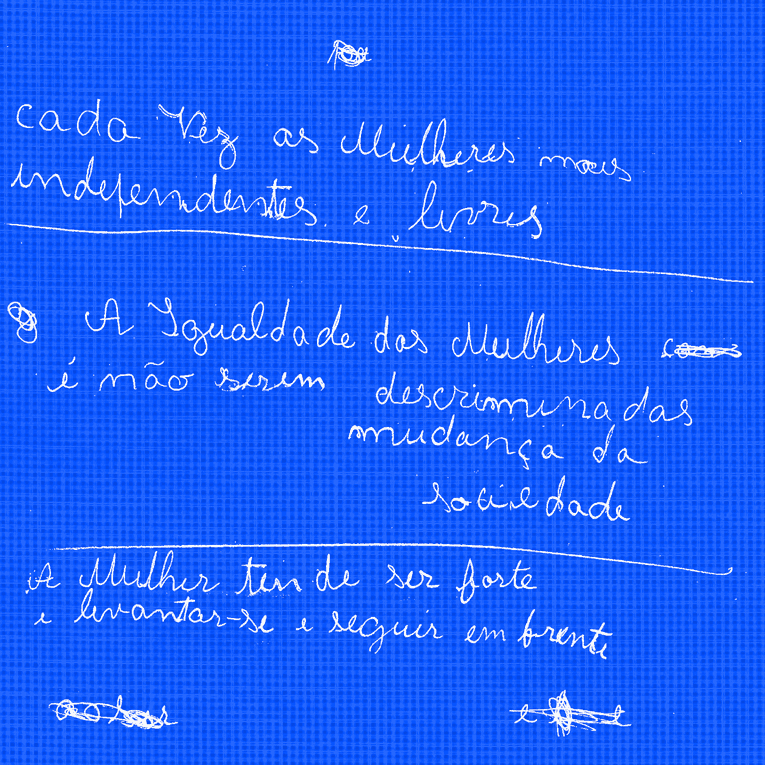 cada Vez as Mulheres mais
independentes e livres
A Igualdade das Mulheres
é não serem descriminadas
mudança da
sociedade
A Mulher tem de ser forte
e levantar-se e seguir em frente